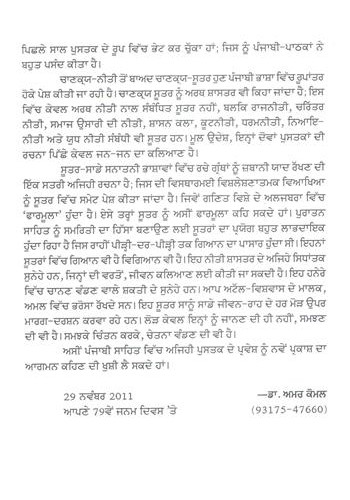 ਪਿਛਲੇ ਸਾਲ ਪੁਸਤਕ ਦੇ ਰੂਪ ਵਿੱਚ ਭੇਟ ਕਰ ਚੁੱਕਾ ਹਾਂ; ਜਿਸ ਨੂੰ ਪੰਜਾਬੀ-ਪਾਠਕਾਂ ਨੇ
ਬਹੁਤ ਪਸੰਦ ਕੀਤਾ ਹੈ।
ਚਾਣਕਯ-ਨੀਤੀ ਤੋਂ ਬਾਅਦ ਚਾਣਕਯ-ਸੂਤਰ ਹੁਣ ਪੰਜਾਬੀ ਭਾਸ਼ਾ ਵਿੱਚ ਰੂਪਾਂਤਰ
ਹੋਕੇ ਪੇਸ਼ ਕੀਤੀ ਜਾ ਰਹੀ ਹੈ। ਚਾਣਕਯ ਸੂਤਰ ਨੂੰ ਅਰਥ ਸ਼ਾਸਤਰ ਵੀ ਕਿਹਾ ਜਾਂਦਾ ਹੈ; ਇਸ
ਵਿੱਚ ਕੇਵਲ ਅਰਥ ਨੀਤੀ ਨਾਲ ਸੰਬੰਧਿਤ ਸੂਤਰ ਨਹੀਂ, ਬਲਕਿ ਰਾਜਨੀਤੀ, ਚਰਿੱਤਰ
ਨੀਤੀ, ਸਮਾਜ ਉਸਾਰੀ ਦੀ ਨੀਤੀ, ਸ਼ਾਸਨ ਕਲਾ, ਕੂਟਨੀਤੀ, ਧਰਮਨੀਤੀ, ਨਿਆਇ-
ਨੀਤੀ ਅਤੇ ਯੁਧ ਨੀਤੀ ਸੰਬੰਧੀ ਵੀ ਸੂਤਰ ਹਨ। ਮੂਲ ਉਦੇਸ਼, ਇਨ੍ਹਾਂ ਦੋਵਾਂ ਪੁਸਤਕਾਂ ਦੀ
ਰਚਨਾ ਪਿੱਛੇ ਕੇਵਲ ਜਨ-ਜਨ ਦਾ ਕਲਿਆਣ ਹੈ।
ਸੂਤਰ-ਸਾਡੇ ਸਨਾਤਨੀ ਭਾਸ਼ਾਵਾਂ ਵਿੱਚ ਰਚੇ ਗ੍ਰੰਥਾਂ ਨੂੰ ਜ਼ਬਾਨੀ ਯਾਦ ਰੱਖਣ ਦੀ
ਇੱਕ ਸਤਰੀ ਅਜਿਹੀ ਰਚਨਾ ਹੈ; ਜਿਸ ਦੀ ਵਿਸਥਾਰਮਈ ਵਿਸ਼ਲੇਸ਼ਣਾਤਮਕ ਵਿਆਖਿਆ
ਨੂੰ ਸੂਤਰ ਵਿੱਚ ਸਮੇਟ ਪੇਸ਼ ਕੀਤਾ ਜਾਂਦਾ ਹੈ। ਜਿਵੇਂ ਗਣਿਤ ਵਿਸ਼ੇ ਦੇ ਅਲਜਬਰਾ ਵਿੱਚ
'ਫਾਰਮੂਲਾ' ਹੁੰਦਾ ਹੈ। ਏਸੇ ਤਰ੍ਹਾਂ ਸੂਤਰ ਨੂੰ ਅਸੀਂ ਫਾਰਮੂਲਾ ਕਹਿ ਸਕਦੇ ਹਾਂ। ਪੁਰਾਤਨ
ਸਾਹਿਤ ਨੂੰ ਸਮਰਿਤੀ ਦਾ ਹਿੱਸਾ ਬਣਾਉਣ ਲਈ ਸੂਤਰਾਂ ਦਾ ਪ੍ਰਯੋਗ ਬਹੁਤ ਲਾਭਦਾਇਕ
ਹੁੰਦਾ ਰਿਹਾ ਹੈ ਜਿਸ ਰਾਹੀਂ ਪੀੜ੍ਹੀ-ਦਰ-ਪੀੜ੍ਹੀ ਤਕ ਗਿਆਨ ਦਾ ਪਾਸਾਰ ਹੁੰਦਾ ਸੀ। ਇਹਨਾਂ
ਸੂਤਰਾਂ ਵਿੱਚ ਗਿਆਨ ਵੀ ਹੈ ਵਿਗਿਆਨ ਵੀ ਹੈ। ਇਹ ਨੀਤੀ ਸ਼ਾਸਤਰ ਦੇ ਅਜਿਹੇ ਸਿਧਾਂਤਕ
ਸੁਨੇਹੇ ਹਨ, ਜਿਨ੍ਹਾਂ ਦੀ ਵਰਤੋਂ, ਜੀਵਨ ਕਲਿਆਣ ਲਈ ਕੀਤੀ ਜਾ ਸਕਦੀ ਹੈ। ਇਹ ਹਨੇਰੇ
ਵਿੱਚ ਚਾਨਣ ਵੰਡਣ ਵਾਲੇ ਸ਼ਕਤੀ ਦੇ ਸੁਨੇਹੇ ਹਨ। ਆਪ ਅਟੱਲ-ਵਿਸ਼ਵਾਸ ਦੇ ਮਾਲਕ,
ਅਮਲ ਵਿੱਚ ਭਰੋਸਾ ਰੱਖਦੇ ਸਨ। ਇਹ ਸੂਤਰ ਸਾਨੂੰ ਸਾਡੇ ਜੀਵਨ-ਰਾਹ ਦੇ ਹਰ ਮੋੜ ਉਪਰ
ਮਾਰਗ-ਦਰਸ਼ਨ ਕਰਵਾ ਰਹੇ ਹਨ। ਲੋੜ ਕੇਵਲ ਇਨ੍ਹਾਂ ਨੂੰ ਜਾਨਣ ਦੀ ਹੀ ਨਹੀਂ, ਸਮਝਣ
ਦੀ ਵੀ ਹੈ। ਸਮਝਕੇ ਚਿੰਤਨ ਕਰਕੇ, ਚੇਤਨਾ ਵੰਡਣ ਦੀ ਵੀ ਹੈ।
ਅਸੀਂ ਪੰਜਾਬੀ ਸਾਹਿਤ ਵਿੱਚ ਅਜਿਹੀ ਪੁਸਤਕ ਦੇ ਪ੍ਰਵੇਸ਼ ਨੂੰ ਨਵੇਂ ਪ੍ਰਕਾਸ਼ ਦਾ
ਆਗਮਨ ਕਹਿਣ ਦੀ ਖੁਸ਼ੀ ਲੈ ਸਕਦੇ ਹਾਂ।
29 ਨਵੰਬਰ 2011 —ਡਾ. ਅਮਰ ਕੋਮਲ
ਆਪਣੇ 79ਵੇਂ ਜਨਮ ਦਿਵਸ 'ਤੇ (93175-47660)